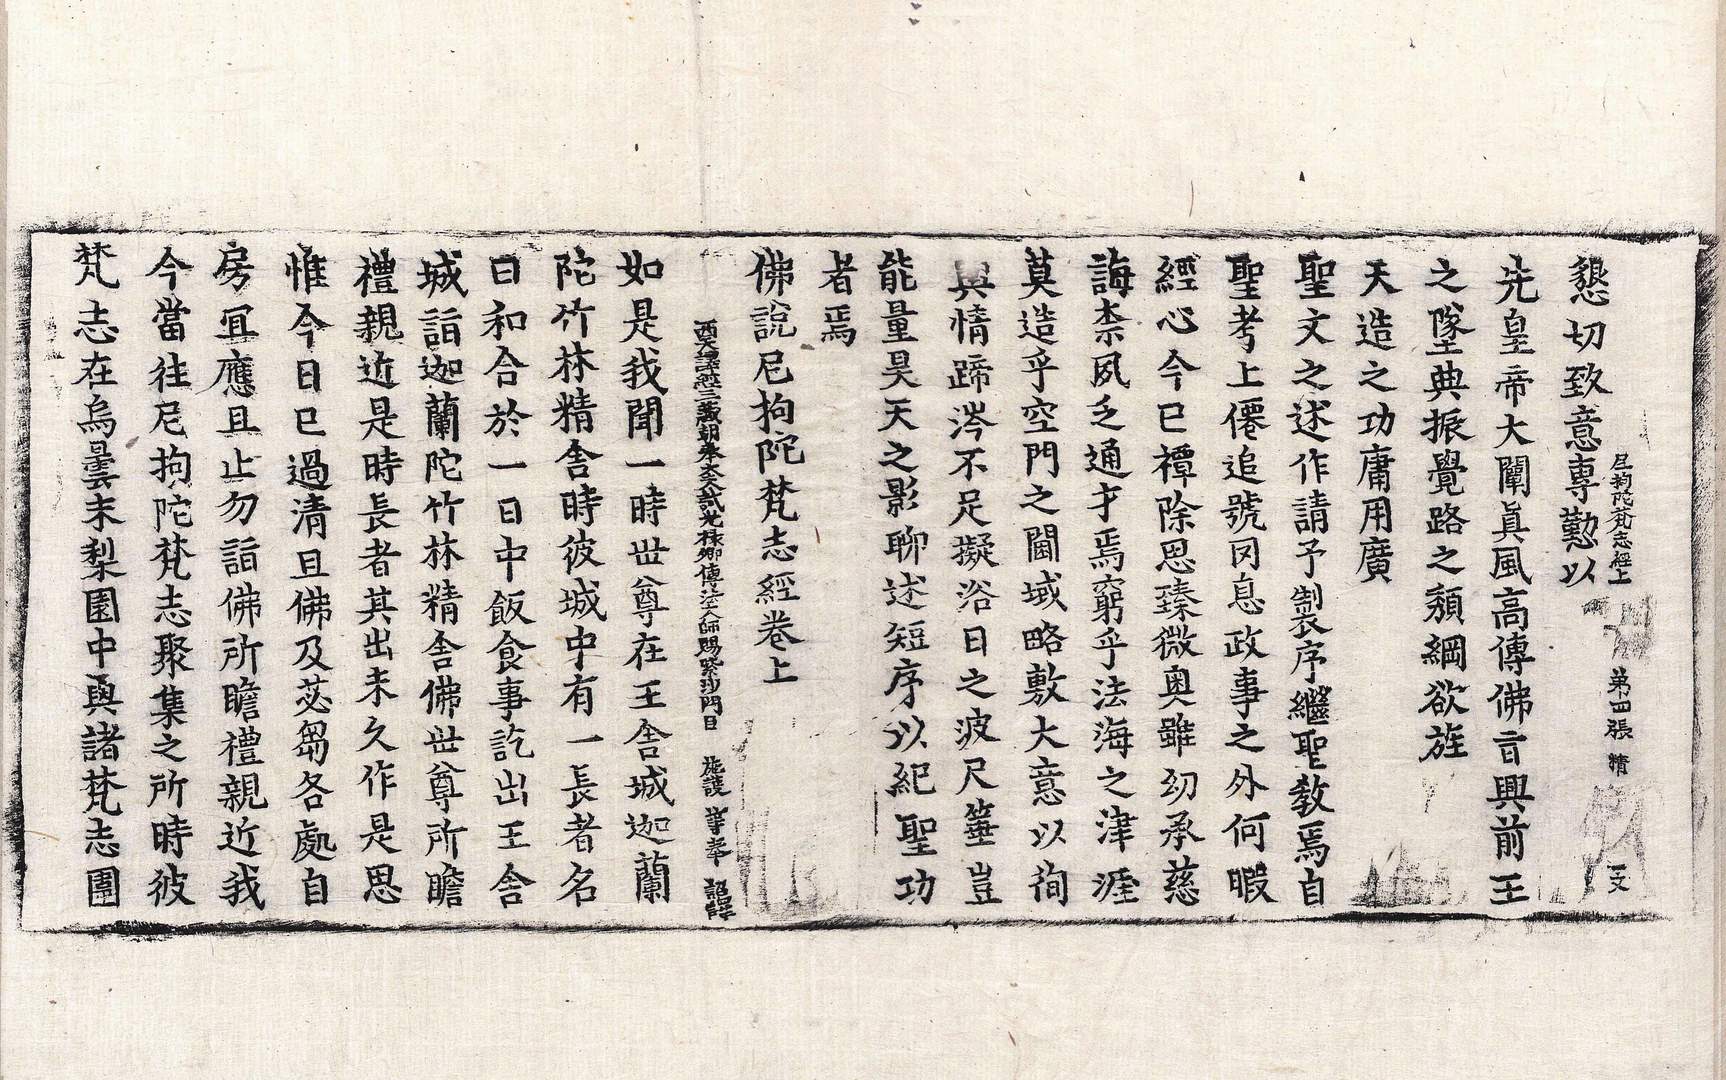 尼拘陀梵志經上 第四張 精 文
懇切致意專懃以
先皇帝大闡眞風高傳佛言興前王
之墜典振覺路之頹綱欲旌
天造之功庸用廣
聖文之述作請予製序繼聖教焉自
聖考上僊追號罔息政事之外何暇
經心今已禫除思臻微奧雖幼承慈
誨柰夙乏通才焉窮乎法海之津涯
莫造乎空門之閫域略敷大意以徇
輿情蹄涔不足擬浴日之波尺箠豈
能量昊天之影聊述短序以紀聖功
者焉
佛說尼拘陀梵志經卷上
西天譯經三藏朝奉大夫試光祿卿傳法大師賜紫沙門臣 施護 等奉 詔譯
如是我聞一時世尊在王舍城迦蘭
陀竹林精舍時彼城中有一長者名
曰和合於一日中飯食事訖出王舍
城詣迦蘭陀竹林精舍佛世尊所瞻
禮親近是時長者其出未久作是思
惟今日已過清旦佛及苾芻各處自
房宜應且止勿詣佛所瞻禮親近我
今當往尼拘陀梵志聚集之所時彼
梵志在烏曇末梨園中與諸梵志圍